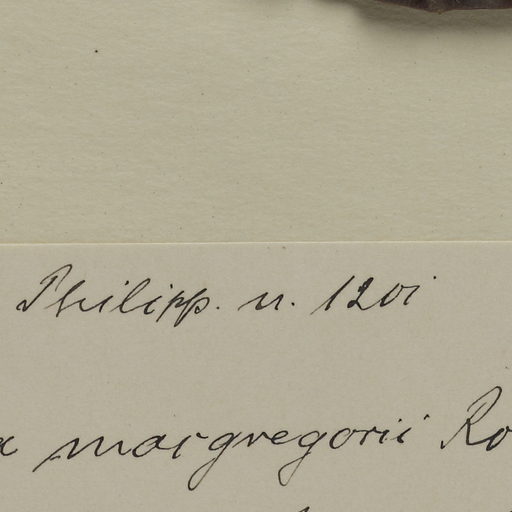 Philipp. n. 1201
macgregorii Ro